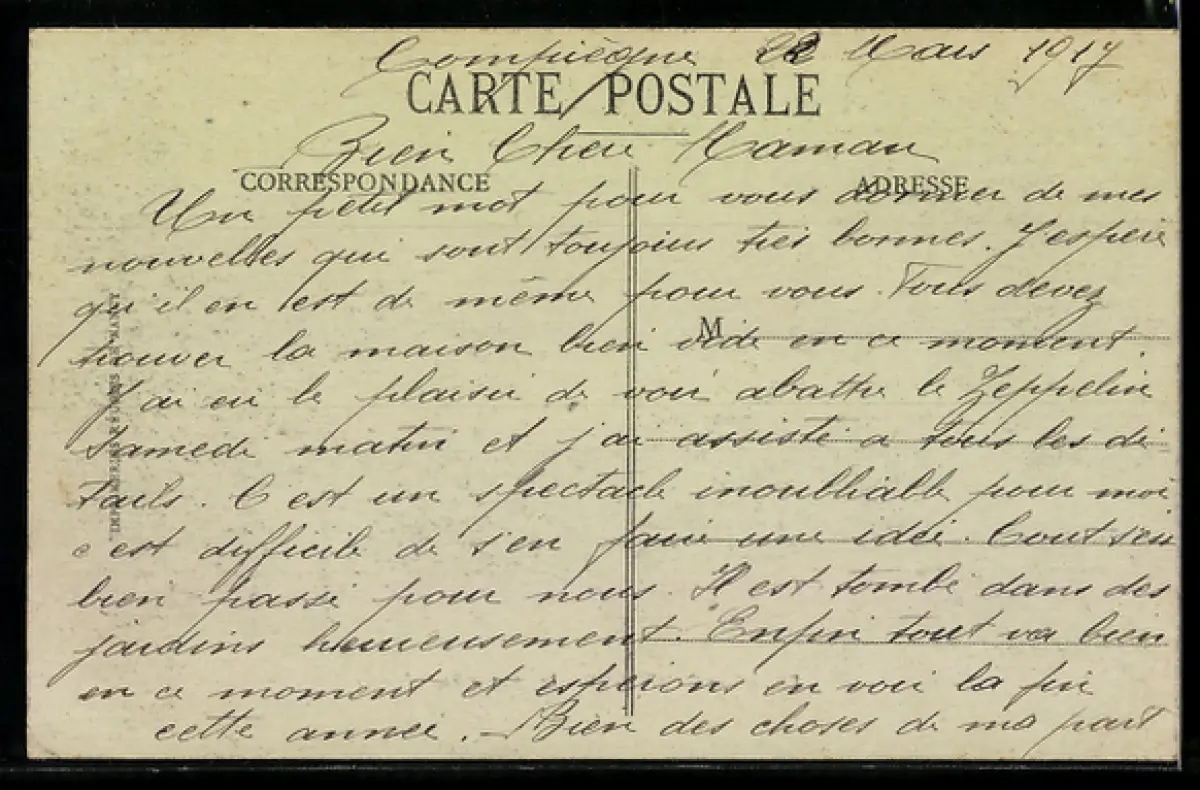 Compiègne 22 Mars 1917
CARTE POSTALE
Bien Cher Maman
CORRESPONDANCE
ADRESSE
Un petit mot pour vous donner de mes
nouvelles qui sont toujours très bonnes. J'espère
qu'il en est de même pour vous. Vous devez
M
trouver la maison bien vide en ce moment.
J'ai eu le plaisir de voir abattre le Zeppelin
samedi matin et j'ai assisté a tous les dé
tails. C'est un spectacle inoubliable pour moi
c'est difficile de s'en faire une idée. Tout s'est
bien passé pour nous. Il est tombé dans des
jardins heureusement. Enfin tout va bien
en ce moment et espérons en voir la fin
cette année. - Bien des choses de ma part